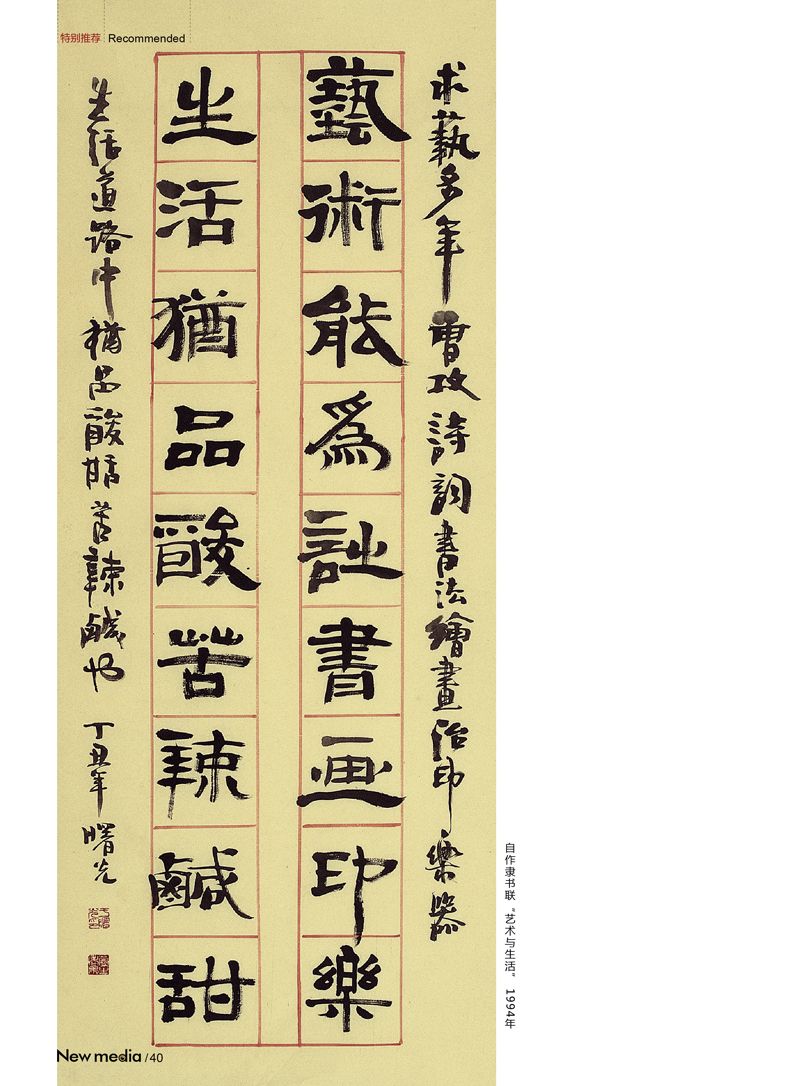 特别推荐 Recommended
求藝多年 曾攻詩詞書法繪畫治印樂器
藝術能爲詩書画印樂
生活猶品酸苦辣鹹甜
生活道路中猶品酸甜苦辣鹹也 丁丑年 曙光
自作隶书联“艺术与生活” 1994年
New media /40